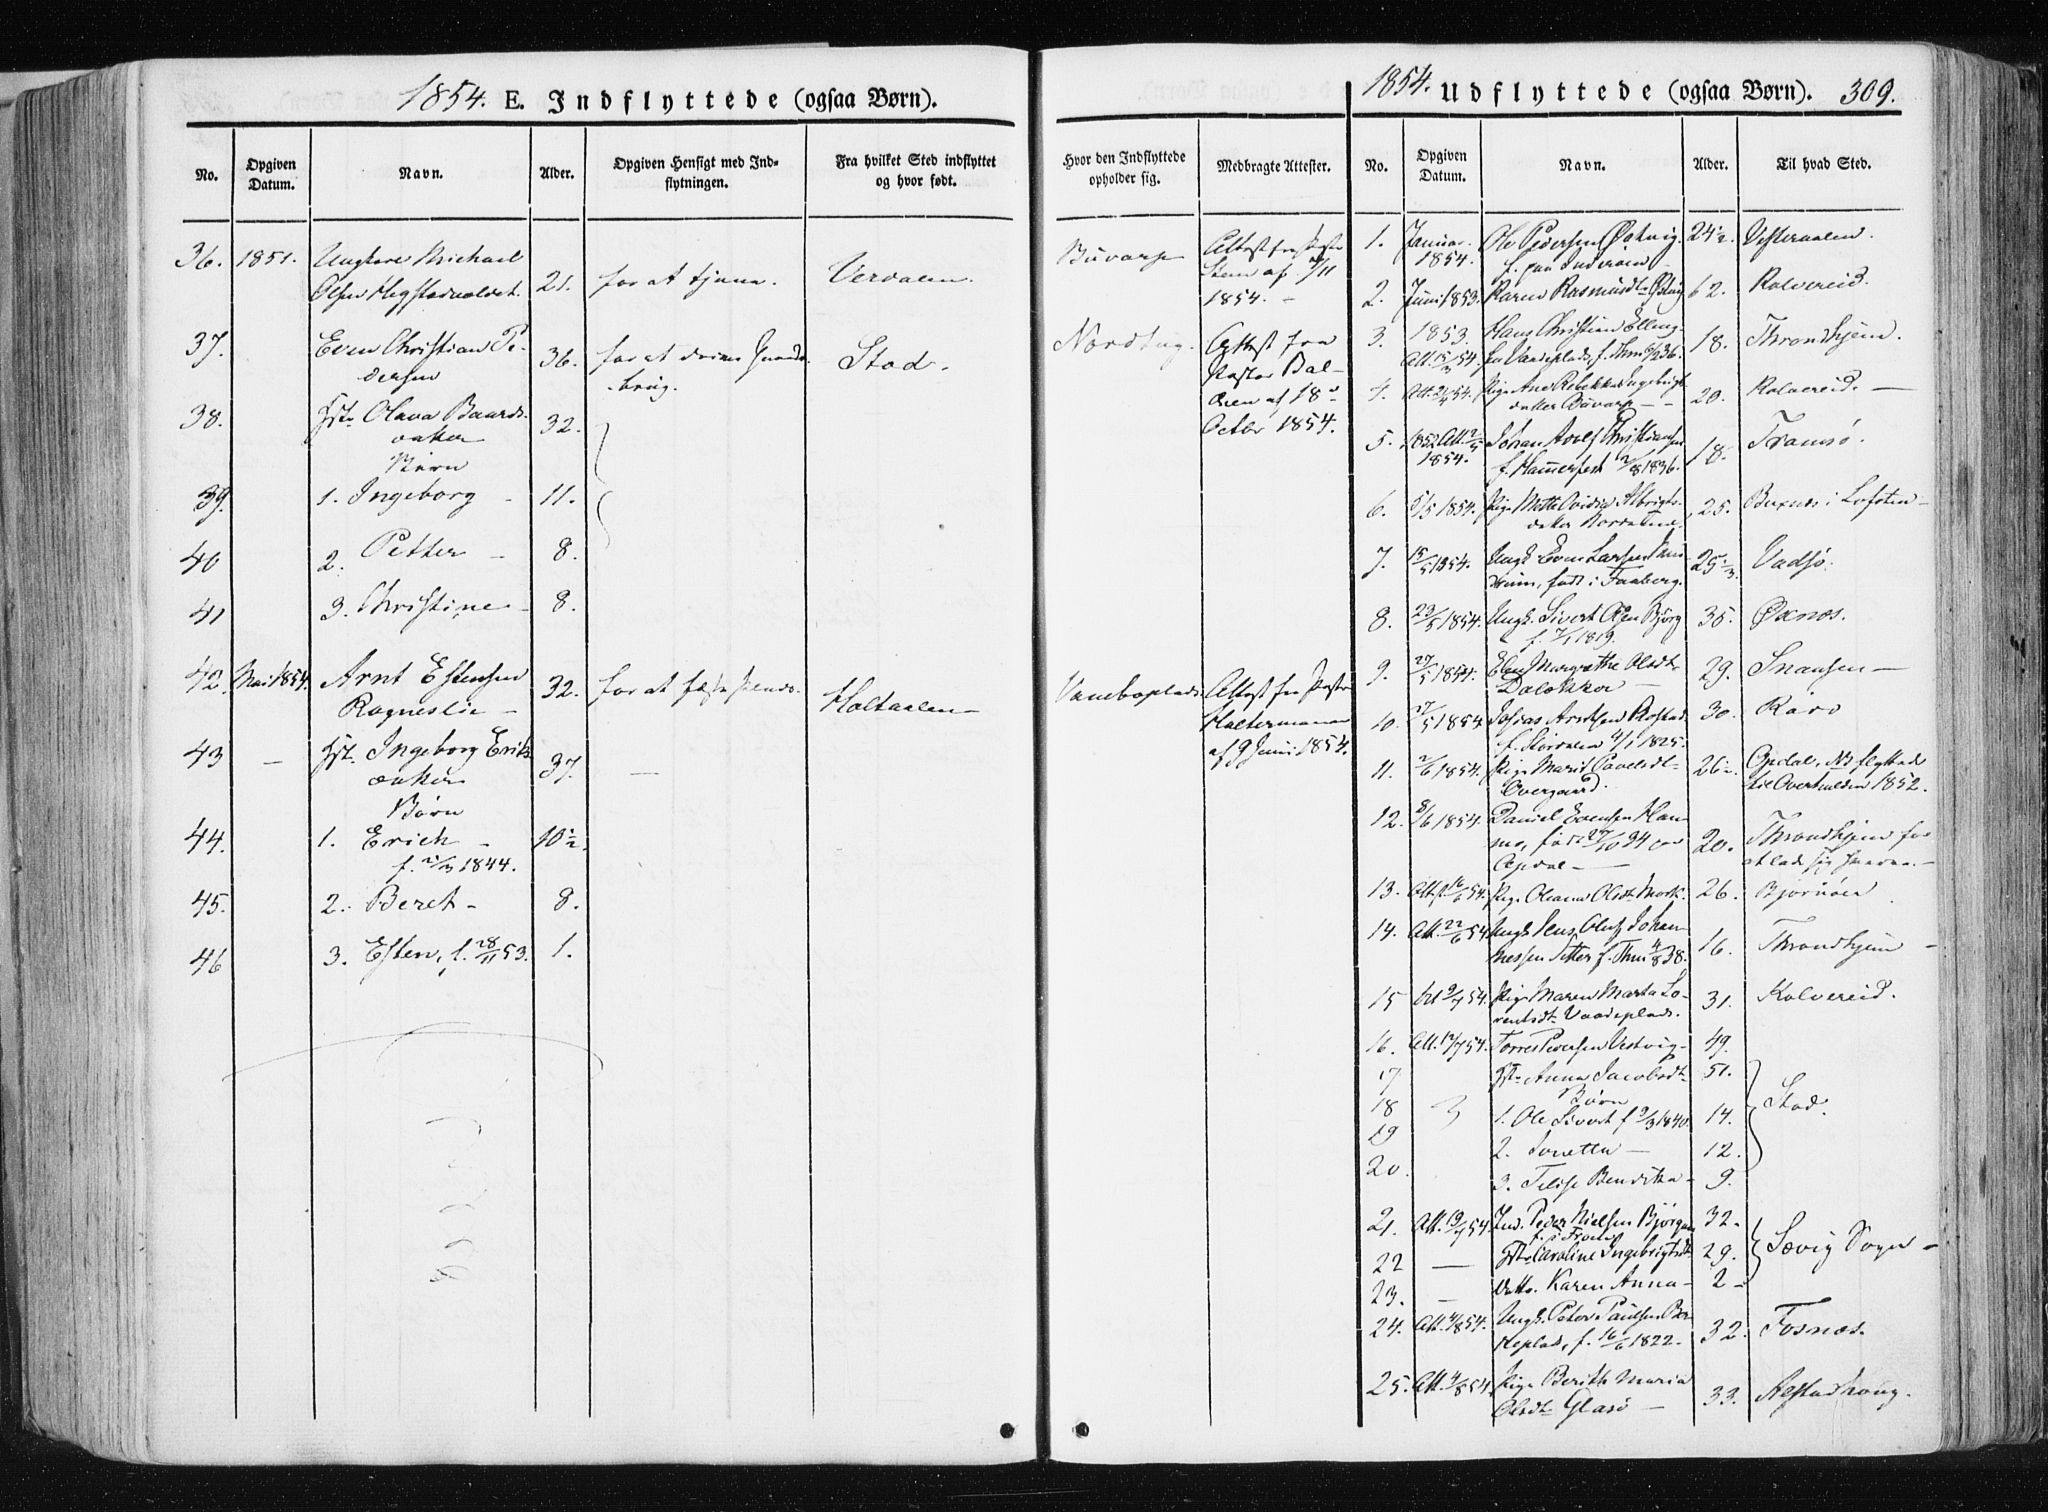 1854. E. Indflyttede (ogsaa Børn).
No.
Opgiven Datum.
Navn.
Alder.
Opgiven Hensigt med Indflytningen.
Fra hvilket Sted indflyttet og hvor født.
Hvor den Indflyttede opholder sig.
Medbragte Attester.
36. 1851. Ungkarl Michael
Olsen 21. for at tjene. Verdalen.
Buvarp
Attest fra
1854.
37. Even Christian Pe-
dersen 36. for at drive
brug. Stod.
Nordtug. Attest fra
Pastor Bal-
af 18de
Octbr 1854.
38. Hst. Olava Baards-
datter 32.
Børn
39. 1. Ingeborg - 11.
40 2. Petter - 8.
41 3. Christine - 8.
42. Mai 1854. Arnt Estensen
Rogneslie - 32. for at fæste Plads. Holtaalen -
Attest fra Pastor
Haltermann
af 9 Juni 1854.
43 - Hst. Ingeborg Eriks
datter 37. -
Børn
44. 1. Erich - 10½.
1844.
45. 2. Beret - 8.
46 3. Esten, f. 28/11 53. 1.
1854. Udflyttede (ogsaa Børn). 309.
No.
Opgiven Datum.
Navn.
Alder.
Til hvad Sted.
1. Januar 1854. Ole Pedersen Østvig 24½ Vesteraalen.
f. paa Inderøen
2. Juni 1853. Karen Rasmusdtr Østvig 62. Kolvereid.
3. 1853. Hans Christian Elling-
Att. 15/3 54. 18. Throndhjem.
4. Pige Ane Rebekka Ingebrigt-
datter Buvarp - 20. Kolvereid. -
5. 1852 Att. 2/5 1854. Johan Adolf Christiansen
f. Hammerfest 2/8 1836. 18. Tromsø.
6. 5/5 1854. Pige Mette Albrigts-
datter 25. Buxnes i Lofoten -
7. 15/5 1854. Ungk. Even Larsen
født i Faaberg. 25 Vadsø.
8. 23/5 1854. Ungk. Sivert Olsen Bjørg
f. 7/1 1819. 35. Øxnes.
9. 27/5 1854. Elen Margrethe Olsdtr
29. Snaasen -
10. 27/5 1854 Josias Arntsen Rostad
f. Stordalen 4/1 1825. 30. Rørø
11. 2/6 1854. Pige Marit Pavelsdtr
Overgaard. 26½ Opdal, NB flyttede
til Overhalden 1852.
12. 8/6 1854. Daniel Evensen Ham-
mo, født 27/10 34 paa
Opdal - 20. Throndhjem for
at lade sig
13. Attst 16/6 54. Pige Oleana Olsdtr Mork. 26. Bjørnøer
14. Att. 22/6 54 Ungk. Jens Oluf Johan-
nessen Sitter f. Thm 4/8 38. 16. Throndhjem -
15 Att 9/7 54. Pige Maren Marta Lo-
rentsdtr Vaadeplads. 31. Kolvereid.
16. Att. 12/7 54. Torres Pedersen Vestvig - 49.
17 Hst. Anna Jacobsdtr 51.
Børn
18 1. Ole Sivert f 9/3 1840. 14. Stod.
19 2. Jonetta - 12.
20. 3. Benditha - 9.
21. Att. 19/7 54. Ind. Peder Nielsen Bjørgan 32.
22 - Hst. Caroline Ingebrigtsdtr 29. Løvig Sogn -
23. - Datter Karen Anna - 2 -
24. Att. 4/8 54. Ungk. Peter Paulsen
f. 16/6 1822. 32. Fosnæs.
25. Att. 9/8 54. Pige Berith Maria
Olsdtr Glasø - 33. Alstadhoug.